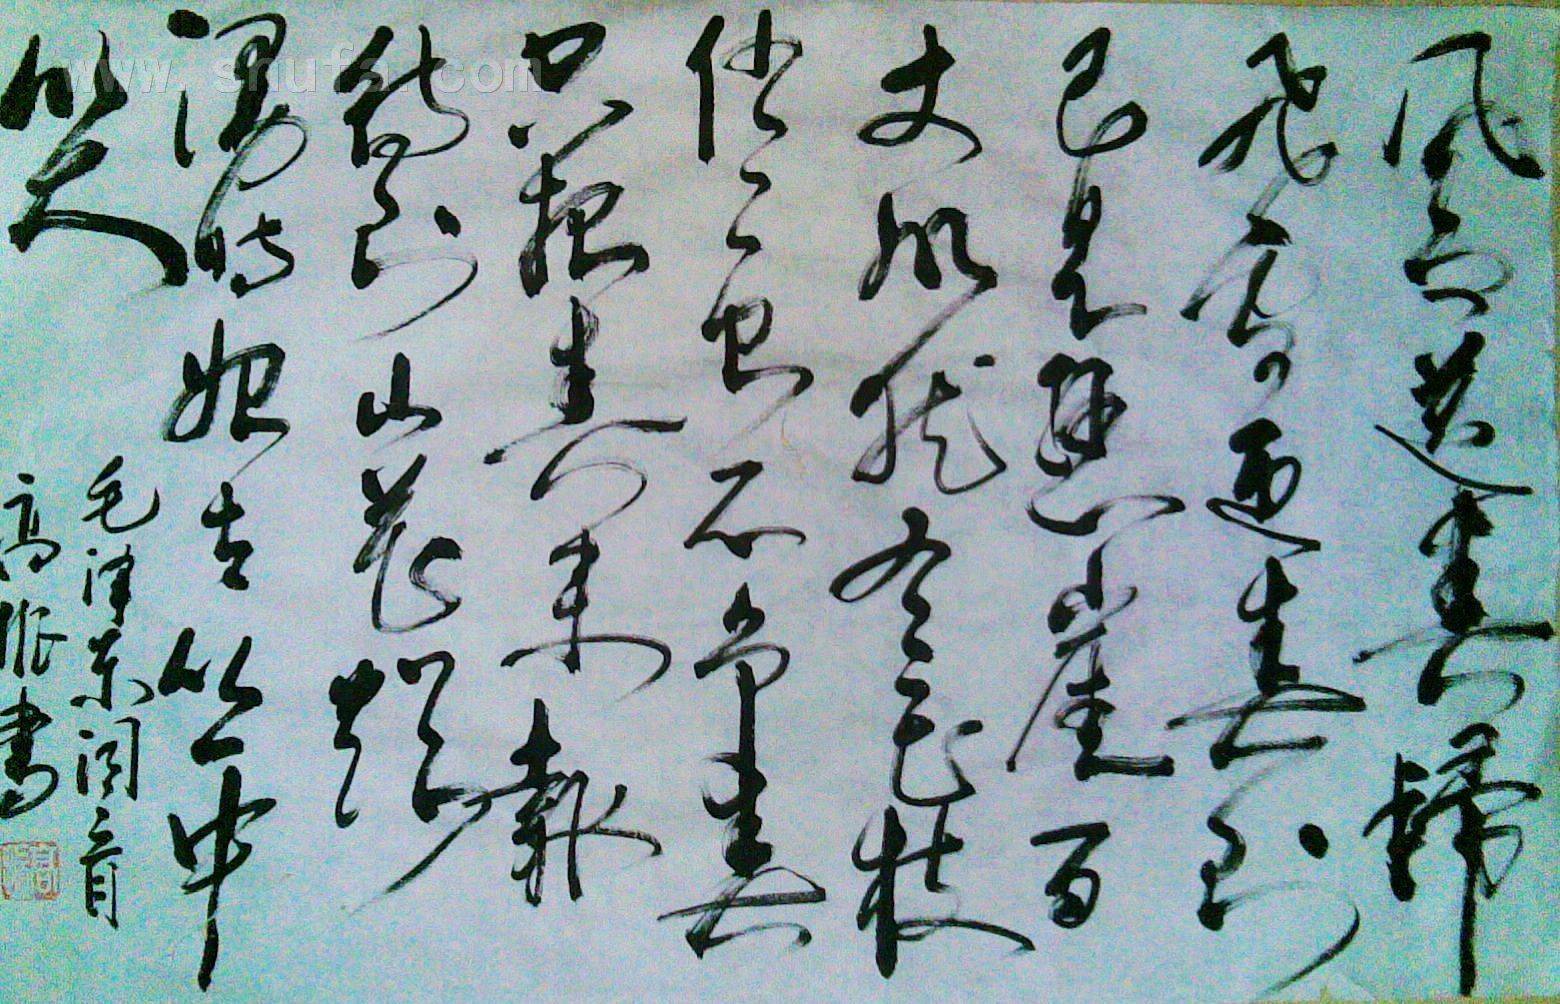 风雨送春歸
飞雪迎春到
已是悬崖百
丈冰犹有花枝
俏俏也不争春
只把春来報
待到山花烂
漫时她在丛中
笑
毛泽东词一首
高振書
www.shufa.com